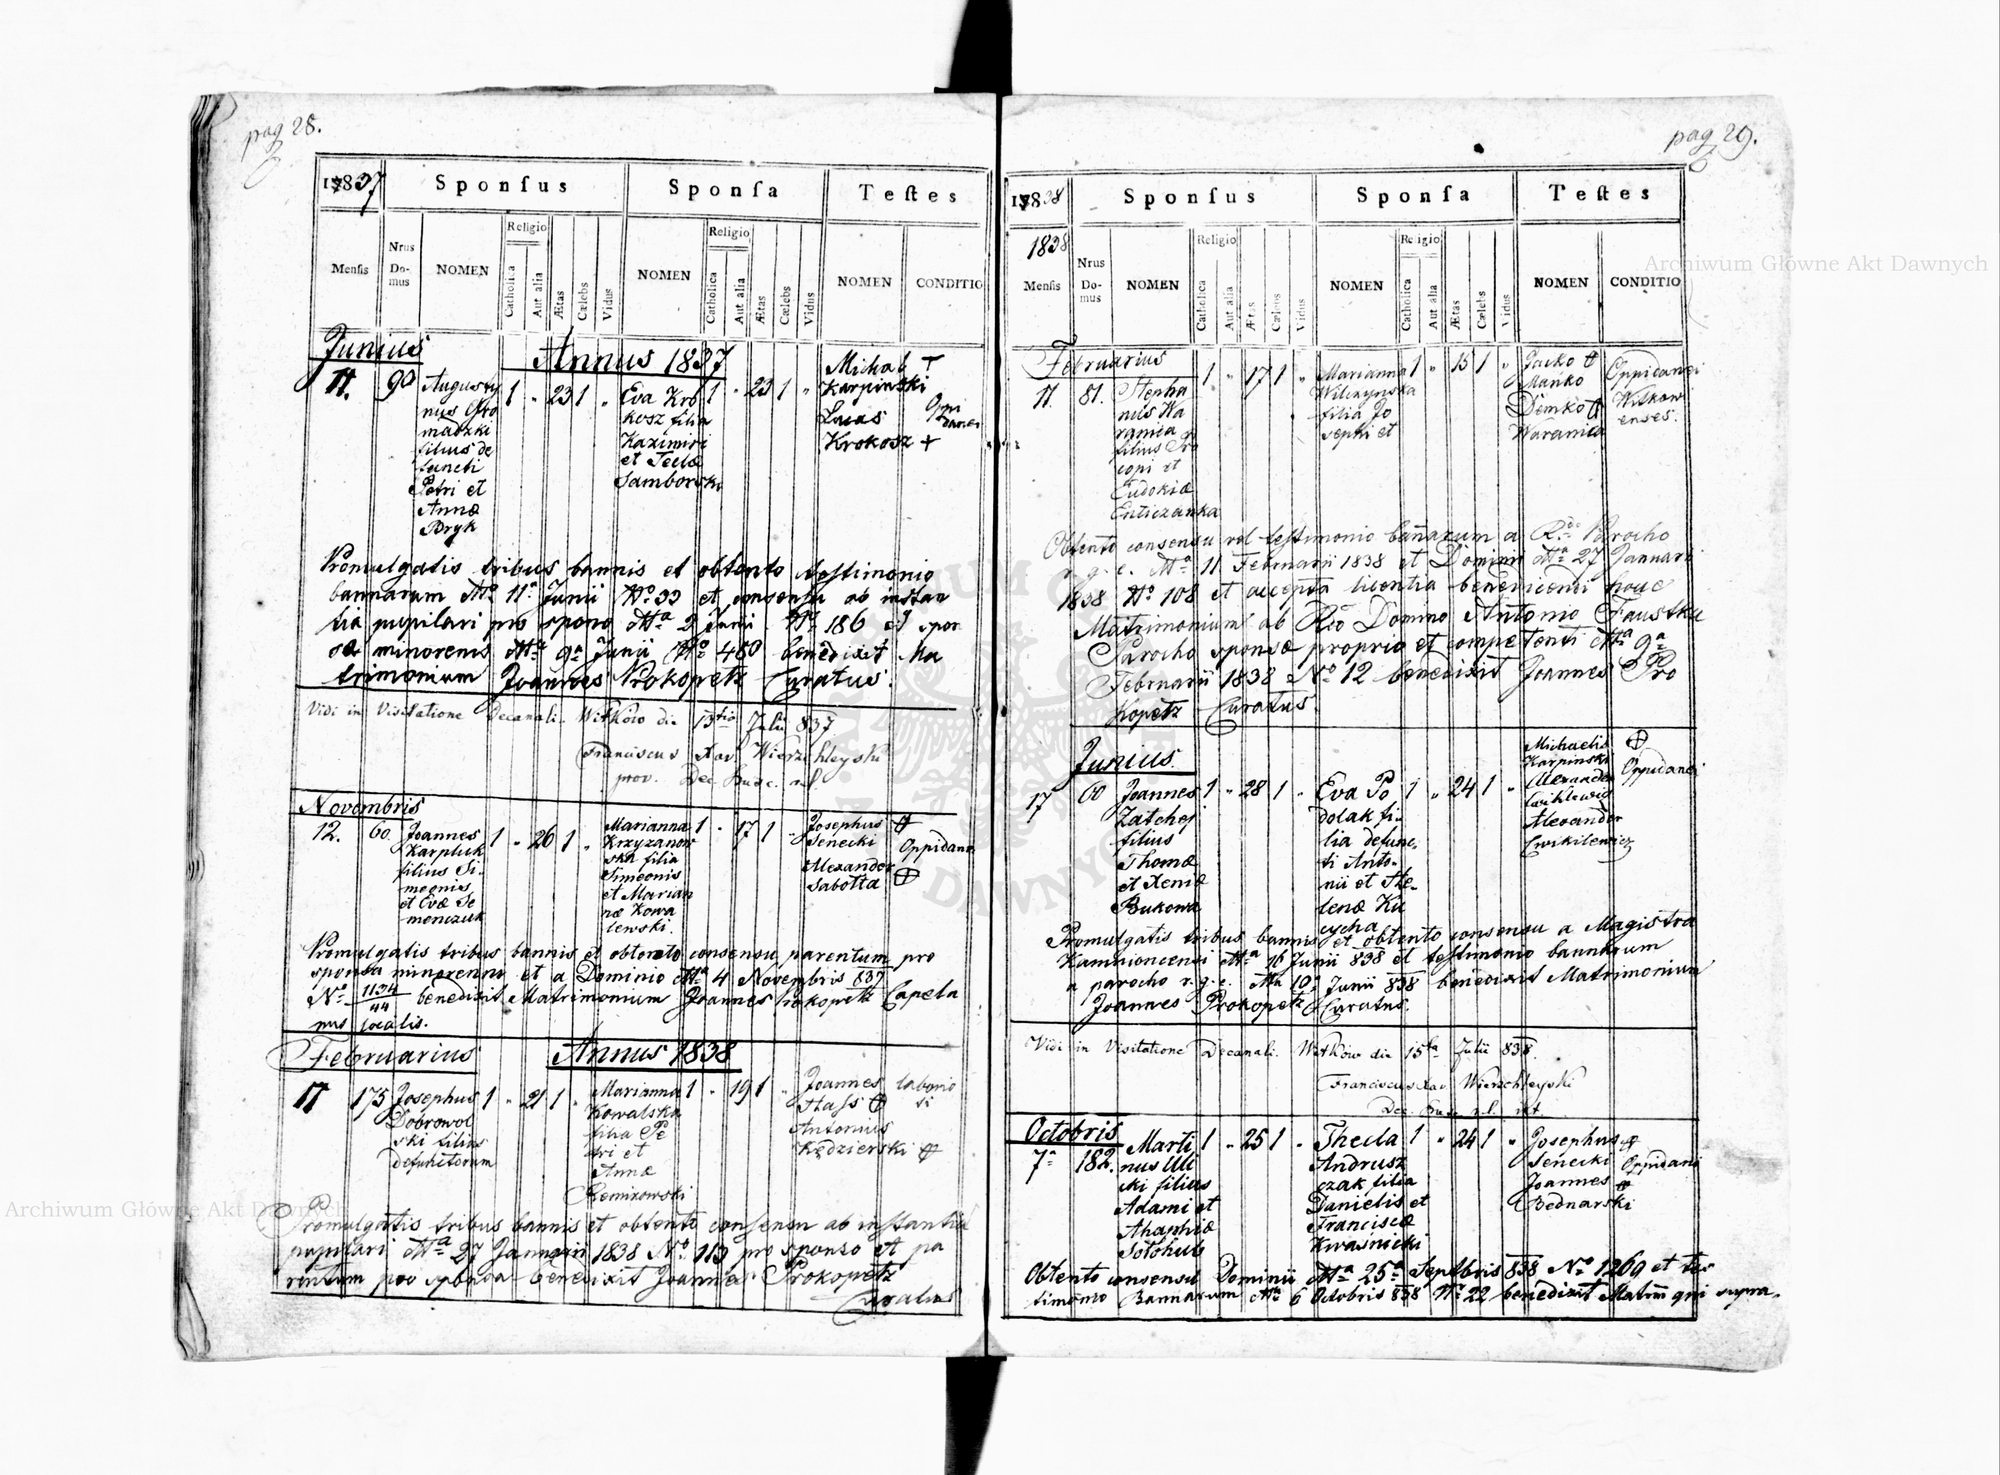 pag 28.
1837
Sponſus
Sponſa
Teſtes
Mensis
Nrus Do-mus
NOMEN
Religio
Catholica
Aut alia
Ætas
Cælebs
Vidus
NOMEN
Religio
Catholica
Aut alia
Ætas
Cælebs
Vidus
NOMEN
CONDITIO
Junius
Annus 1837
11. 90
Augusty
nus Gro
madzki
filius de
functi
Petri et
Annæ
Bryk
1 " 23 1 "
Eva Kro
kosz filia
Kazimiri
et Teclæ
Samborski
1 " 23 1 "
Michal +
Karpinski
Lucas
Krokosz +
Oppi
danei
Promulgatis tribus bannis et obtento testimonio
bannarum Na 11a Junii No 33 et consensu ab instan
tia pupilari pro sponso Na 2 Junii No 186 et spon
sæ minorenis Na 9a Junii No 480 benedixit Ma
trimonium Joannes Prokopetz Curatus.
Vidi in Visitatione Decanali. Witków die 13tio Julii 837
Franciscus Xav Wierzchleyski
prov. Dec. Busc. r.l.
Novembris
12. 60.
Joannes
Karpluk
filius Si-
meonis
et Evæ Se
menczuk
1 " 26 1 "
Marianna
Krzyzanow
ska filia
Simeonis
et Marian
næ Kowa
lewski.
1 " 17 1 "
Josephus
Senecki
Alexander
Sabotta
Oppidani
Promulgatis tribus bannis et obtento consensu parentum pro
sponsa minorenni et a Dominio Na 4 Novembris 837
No 1134/44 benedixit Matrimonium Joannes Prokopetz Capela
nus localis.
Februarius
Annus 1838
11 175
Josephus
Dobrowol
ski filius
defunctorum
1 " 21 1 "
Marianna
Kowalska
filia Pe
tri et
Annæ
Remizowski
1 " 19 1 "
Joannes
Stass
Antonius
Kędzierski
laborio
si
Promulgatis tribus bannis et obtento consensu ab instantia
pupilari Na 27 Januarii 1838 No 113 pro sponso et pa
rentum pro sponsa benedixit Joannes Prokopetz
Curatus
pag 29.
1838
Sponſus
Sponſa
Teſtes
1838
Mensis
Nrus Do-mus
NOMEN
Religio
Catholica
Aut alia
Ætas
Cælebs
Vidus
NOMEN
Religio
Catholica
Aut alia
Ætas
Cælebs
Vidus
NOMEN
CONDITIO
Februarius
11. 81.
Stepha
nus Wa
ramica
filius Pro
copi et
Eudokiæ
1 " 17 1 "
Marianna
Wilczynska
filia Jo
sephi et
1 " 15 1 "
Jacko
Manko
Demko
Waramica
Oppidanei
Witkow
enses.
Obtento consensu vel testimonio bannarum a Rdo Parocho
r. g. c. Na 11 Februarii 1838 et Dominii Na 27 Januarii
1838 No 108 et accepta licentia benedicendi houc
Matrimonium ab Rdo Domino Antonio Faustka
Parocho sponsæ proprio et competenti Na 9a
Februarii 1838 No 12 benedixit Joannes Pro
kopetz Curatus.
Junius.
17 60
Joannes
Zatchej
filius
Thomæ
et Xeniæ
Bukowa
1 " 28 1 "
Eva Po
dolak fi-
lia defunc-
ti Anto-
nii et He-
lenæ Ku
cycha
1 " 24 1 "
Michaelis
Karpinski
Alexander
Alexander
Cwikilewicz
Oppidanei
Promulgatis tribus bannis et obtento consensu a Magistra
Kamnioncensi Na 16 Junii 838 et testimonio bannarum
a parocho r. g. c. Na 10a Junii 838 benedixit Matrimonium
Joannes Prokopetz Curatus.
Vidi in Visitatione Decanali. Witków die 15ta Julii 838.
Franciscus Xav Wierzchleyski
Dec. Busc r.l.
Octobris
7a 182.
Marti
nus Uli
cki filius
Adami et
Ahaphiæ
Sotohub
1 " 25 1 "
Thecla
Andrusz
czak filia
Danielis et
Franciscæ
Kwasnicki
1 " 24 1 "
Josephus
Senecki
Joannes
Bednarski
Oppidani
Obtento consensu Dominii Na 25a Septbris 838 No 1269 et tes
timonio Bannarum Na 6 Octobris 838 No 22 benedixit Matrim qui supra.
Archiwum Główne Akt Dawnych
Archiwum Główne Akt Dawnych